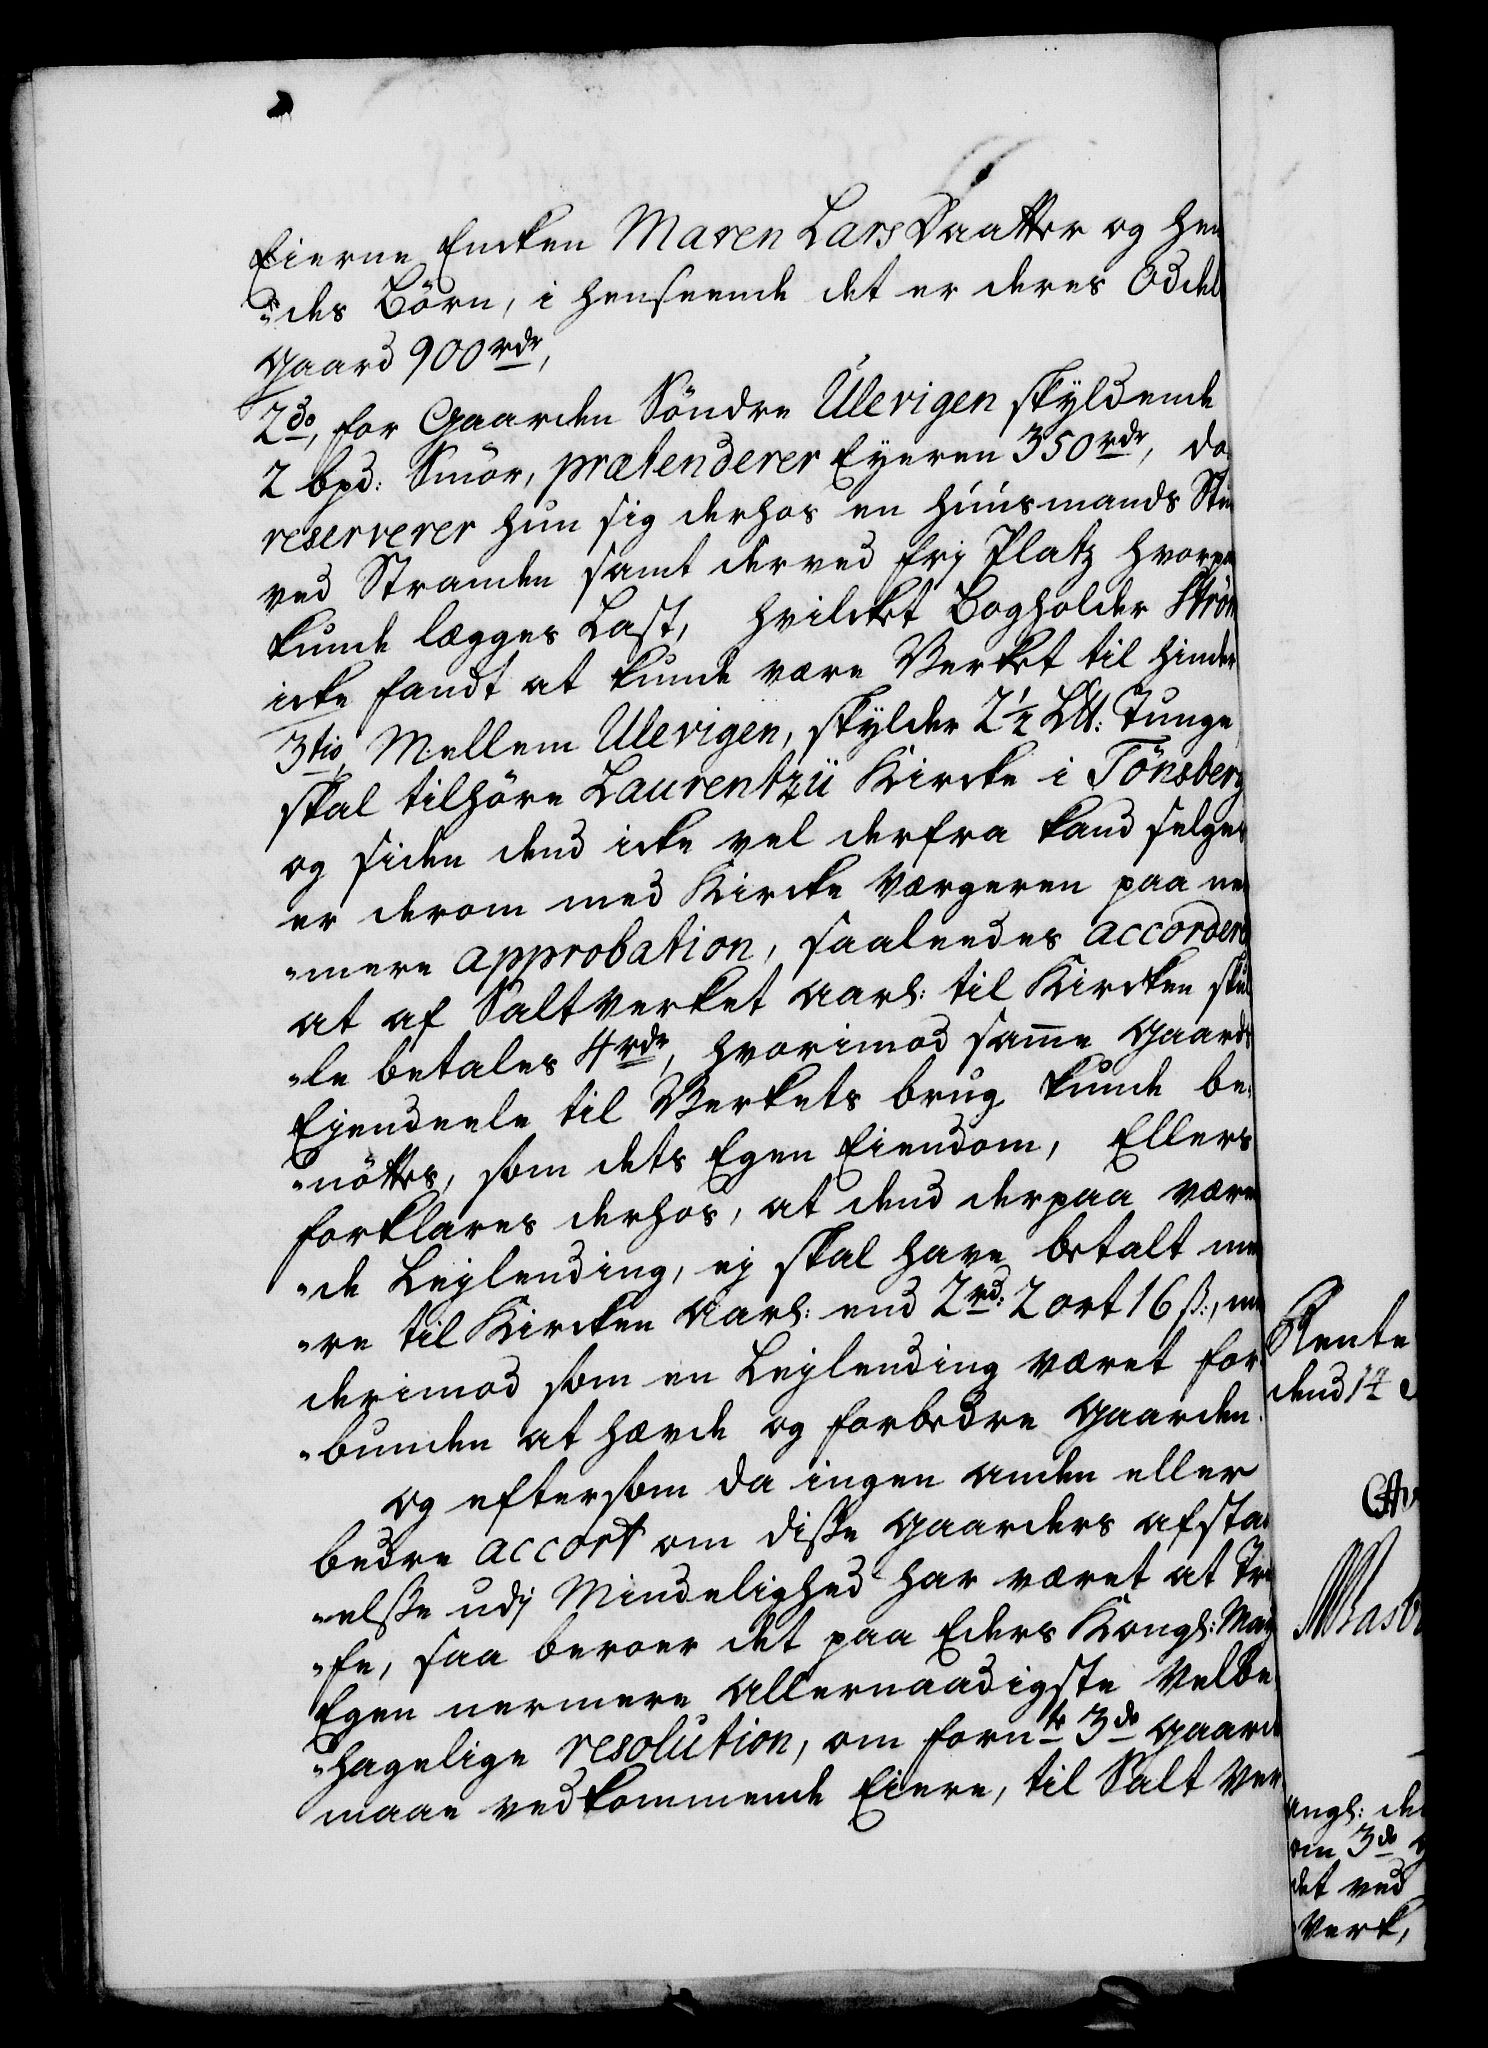 Eierne Encken Maren LarsDaatter og hen
"des Börn, i henseende det er deres Oddel
gaard 900 rdr,
2do, for Gaarden Söndre Ulevigen skyldende
2 bpd: Smör, prætenderer Eyeren 350 rdr, do
reserverer hun sig derhos en huusmands Stue
ved Stranden samt derved frj Platz hvorpaa
kunde lægges Last, hvilcket Bogholder Ström
icke fandt at kunde være Verket til hinder
3tio, Mellem Ulevigen, skylder 2½ Ltt: Tunge
skal tilhöre Laurentzii Kircke i Tönsberg
og siden dend icke vel derfra kand selges
er derom med Kircke Værgeren paa ner
"mere approbation, saaleedes accorderet
at af Saltverket aarl: til Kircken skul
"le betales 4 rdr, hvorimod samme gaards
Ejendeele til Verkets brug kunde be:
"nöttes, som dets Egen Eiendom, Ellers
forklares derhos, at dend derpaa være
"de Lejlending, ej skal have betalt me
"re til Kircken aarl: end 2 rd: 2 ort 16 s:, men
derimod som en Lejlending været for
"bunden at hævde og forbedre gaarden.
og eftersom da ingen anden eller
bedre accort om disse gaarders afsta
"else udj Mindelighed har været at Tref
"fe, saa beroer det paa Eders Kongl: May
Egen nermere allernaadigste Velbe
"hagelige resolution, om fornte 3de gaarde
maae vedkommende Eiere, til Salt Ver
Rente
dend 14
Kongl: de
om 3de g
det ved
Verk,